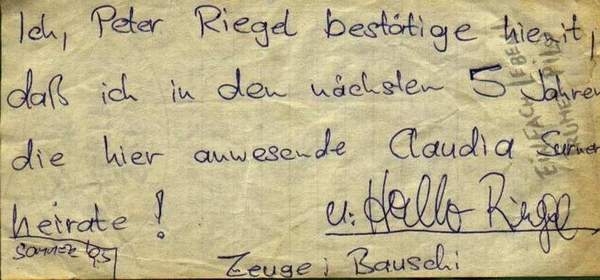 Ich, Peter Riegel bestätige hiemit,
daß ich in den nächsten 5 Jahren
die hier anwesende Claudia
heirate! Riegel
Sommer 95
Zeuge: Bauschi
EINFACH LEBEN